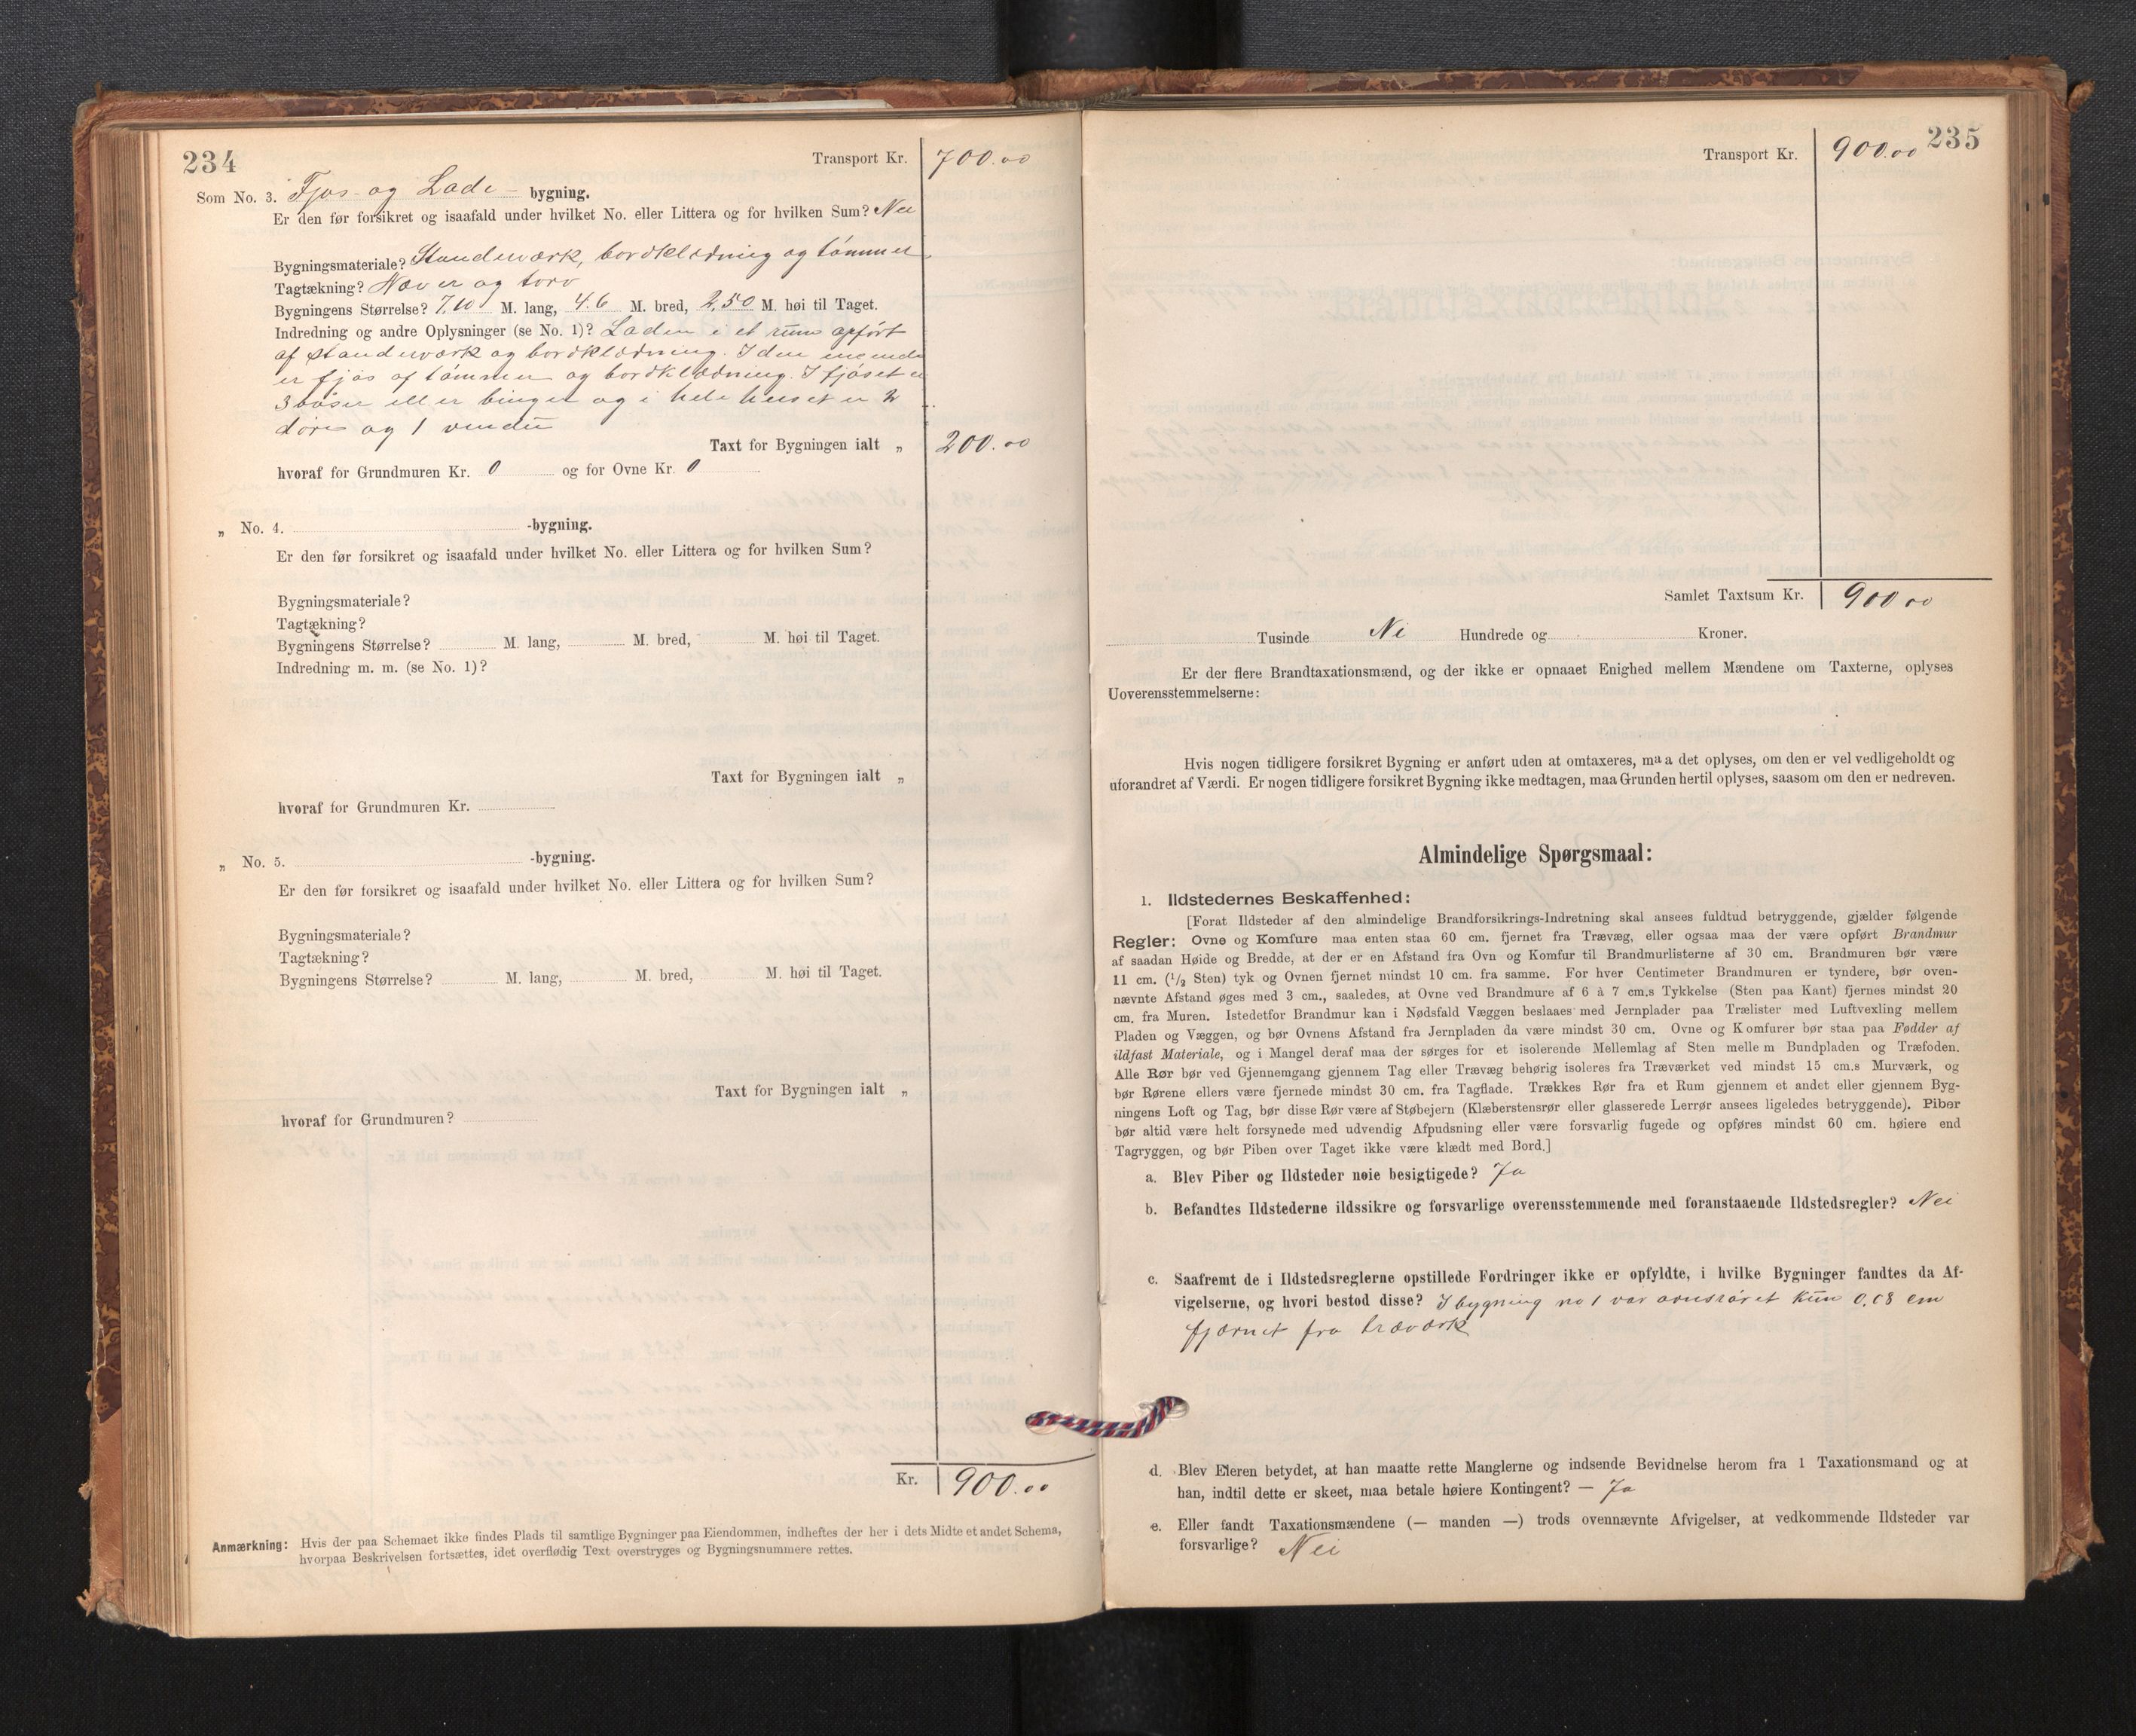 234
Transport Kr. 700.00
Som No. 3. Fjøs- og Lade- bygning.
Er den før forsikret og isaafald under hvilket No. eller Littera og for hvilken Sum? Nei
Bygningsmateriale? Standerværk, bordklædning og tømmer
Tagtækning? Næver og torv
Bygningens Størrelse? 7,10 M. lang, 4.6 M. bred, 2,50 M. høi til Taget.
Indredning og andre Oplysninger (se No. 1)? Laden i et rum opført
af standerværk og bordklædning. I den ene ende
er fjøs af tømmer og bordklædning. I fjøset er
3 baser eller binger og i hele huset er 2
døre og 1 vindu
Taxt for Bygningen ialt „ 200.00
hvoraf for Grundmuren Kr. 0 og for Ovne Kr. 0
„ No. 4. -bygning.
Er den før forsikret og isaafald under hvilket No. eller Littera og for hvilken Sum?
Bygningsmateriale?
Tagtækning?
Bygningens Størrelse? M. lang, M. bred, M. høi til Taget.
Indredning m. m. (se No. 1)?
Taxt for Bygningen ialt „
hvoraf for Grundmuren Kr.
„ No. 5. -bygning.
Er den før forsikret og isaafald under hvilket No. eller Littera og for hvilken Sum?
Bygningsmateriale?
Tagtækning?
Bygningens Størrelse? M. lang, M. bred, M. høi til Taget.
Taxt for Bygningen ialt „
hvoraf for Grundmuren?
Kr. 900.00
Anmærkning: Hvis der paa Schemaet ikke findes Plads til samtlige Bygninger paa Eiendommen, indheftes der her i dets Midte et andet Schema,
hvorpaa Beskrivelsen fortsættes, idet overflødig Text overstryges og Bygningsnummere rettes.
235
Transport Kr. 900.00
Samlet Taxtsum Kr. 900 00
Tusinde Ni Hundrede og Kroner.
Er der flere Brandtaxationsmænd, og der ikke er opnaaet Enighed mellem Mændene om Taxterne, oplyses
Uoverensstemmelserne:
Hvis nogen tidligere forsikret Bygning er anført uden at omtaxeres, maa det oplyses, om den er vel vedligeholdt og
uforandret af Værdi. Er nogen tidligere forsikret Bygning ikke medtagen, maa Grunden hertil oplyses, saasom om den er nedreven.
Almindelige Spørgsmaal:
1. Ildstedernes Beskaffenhed:
[Forat Ildsteder af den almindelige Brandforsikrings-Indretning skal ansees fuldtud betryggende, gjælder følgende
Regler: Ovne og Komfure maa enten staa 60 cm. fjernet fra Trævæg, eller ogsaa maa der være opført Brandmur
af saadan Høide og Bredde, at der er en Afstand fra Ovn og Komfur til Brandmurlisterne af 30 cm. Brandmuren bør være
11 cm. (1/2 Sten) tyk og Ovnen fjernet mindst 10 cm. fra samme. For hver Centimeter Brandmuren er tyndere, bør oven-
nævnte Afstand øges med 3 cm., saaledes, at Ovne ved Brandmure af 6 à 7 cm.s Tykkelse (Sten paa Kant) fjernes mindst 20
cm. fra Muren. Istedetfor Brandmur kan i Nødsfald Væggen beslaaes med Jernplader paa Trælister med Luftvexling mellem
Pladen og Væggen, og bør Ovnens Afstand fra Jernpladen da være mindst 30 cm. Ovne og Komfurer bør staa paa Fødder af
ildfast Materiale, og i Mangel deraf maa der sørges for et isolerende Mellemlag af Sten mellem Bundpladen og Træfoden.
Alle Rør bør ved Gjennemgang gjennem Tag eller Trævæg behørig isoleres fra Træværket ved mindst 15 cm.s Murværk, og
bør Rørene ellers være fjernede mindst 30 cm. fra Tagflade. Trækkes Rør fra et Rum gjennem et andet eller gjennem Byg-
ningens Loft og Tag, bør disse Rør være af Støbejern (Klæberstensrør eller glasserede Lerrør ansees ligeledes betryggende). Piber
bør altid være helt forsynede med udvendig Afpudsning eller være forsvarlig fugede og opføres mindst 60 cm. høiere end
Tagryggen, og bør Piben over Taget ikke være klædt med Bord.]
a. Blev Piber og Ildsteder nøie besigtigede? Ja
b. Befandtes Ildstederne ildssikre og forsvarlige overensstemmende med foranstaaende Ildstedsregler? Nei
c. Saafremt de i Ildstedsreglerne opstillede Fordringer ikke er opfyldte, i hvilke Bygninger fandtes da Af-
vigelserne, og hvori bestod disse? I bygning no 1 var ovnsrøret kun 0,08 cm
fjærnet fra træværk
d. Blev Eieren betydet, at han maatte rette Manglerne og indsende Bevidnelse herom fra 1 Taxationsmand og at
han, indtil dette er skeet, maa betale høiere Kontingent? — Ja
e. Eller fandt Taxationsmændene (— manden —) trods ovennævnte Afvigelser, at vedkommende Ildsteder var
forsvarlige? Nei